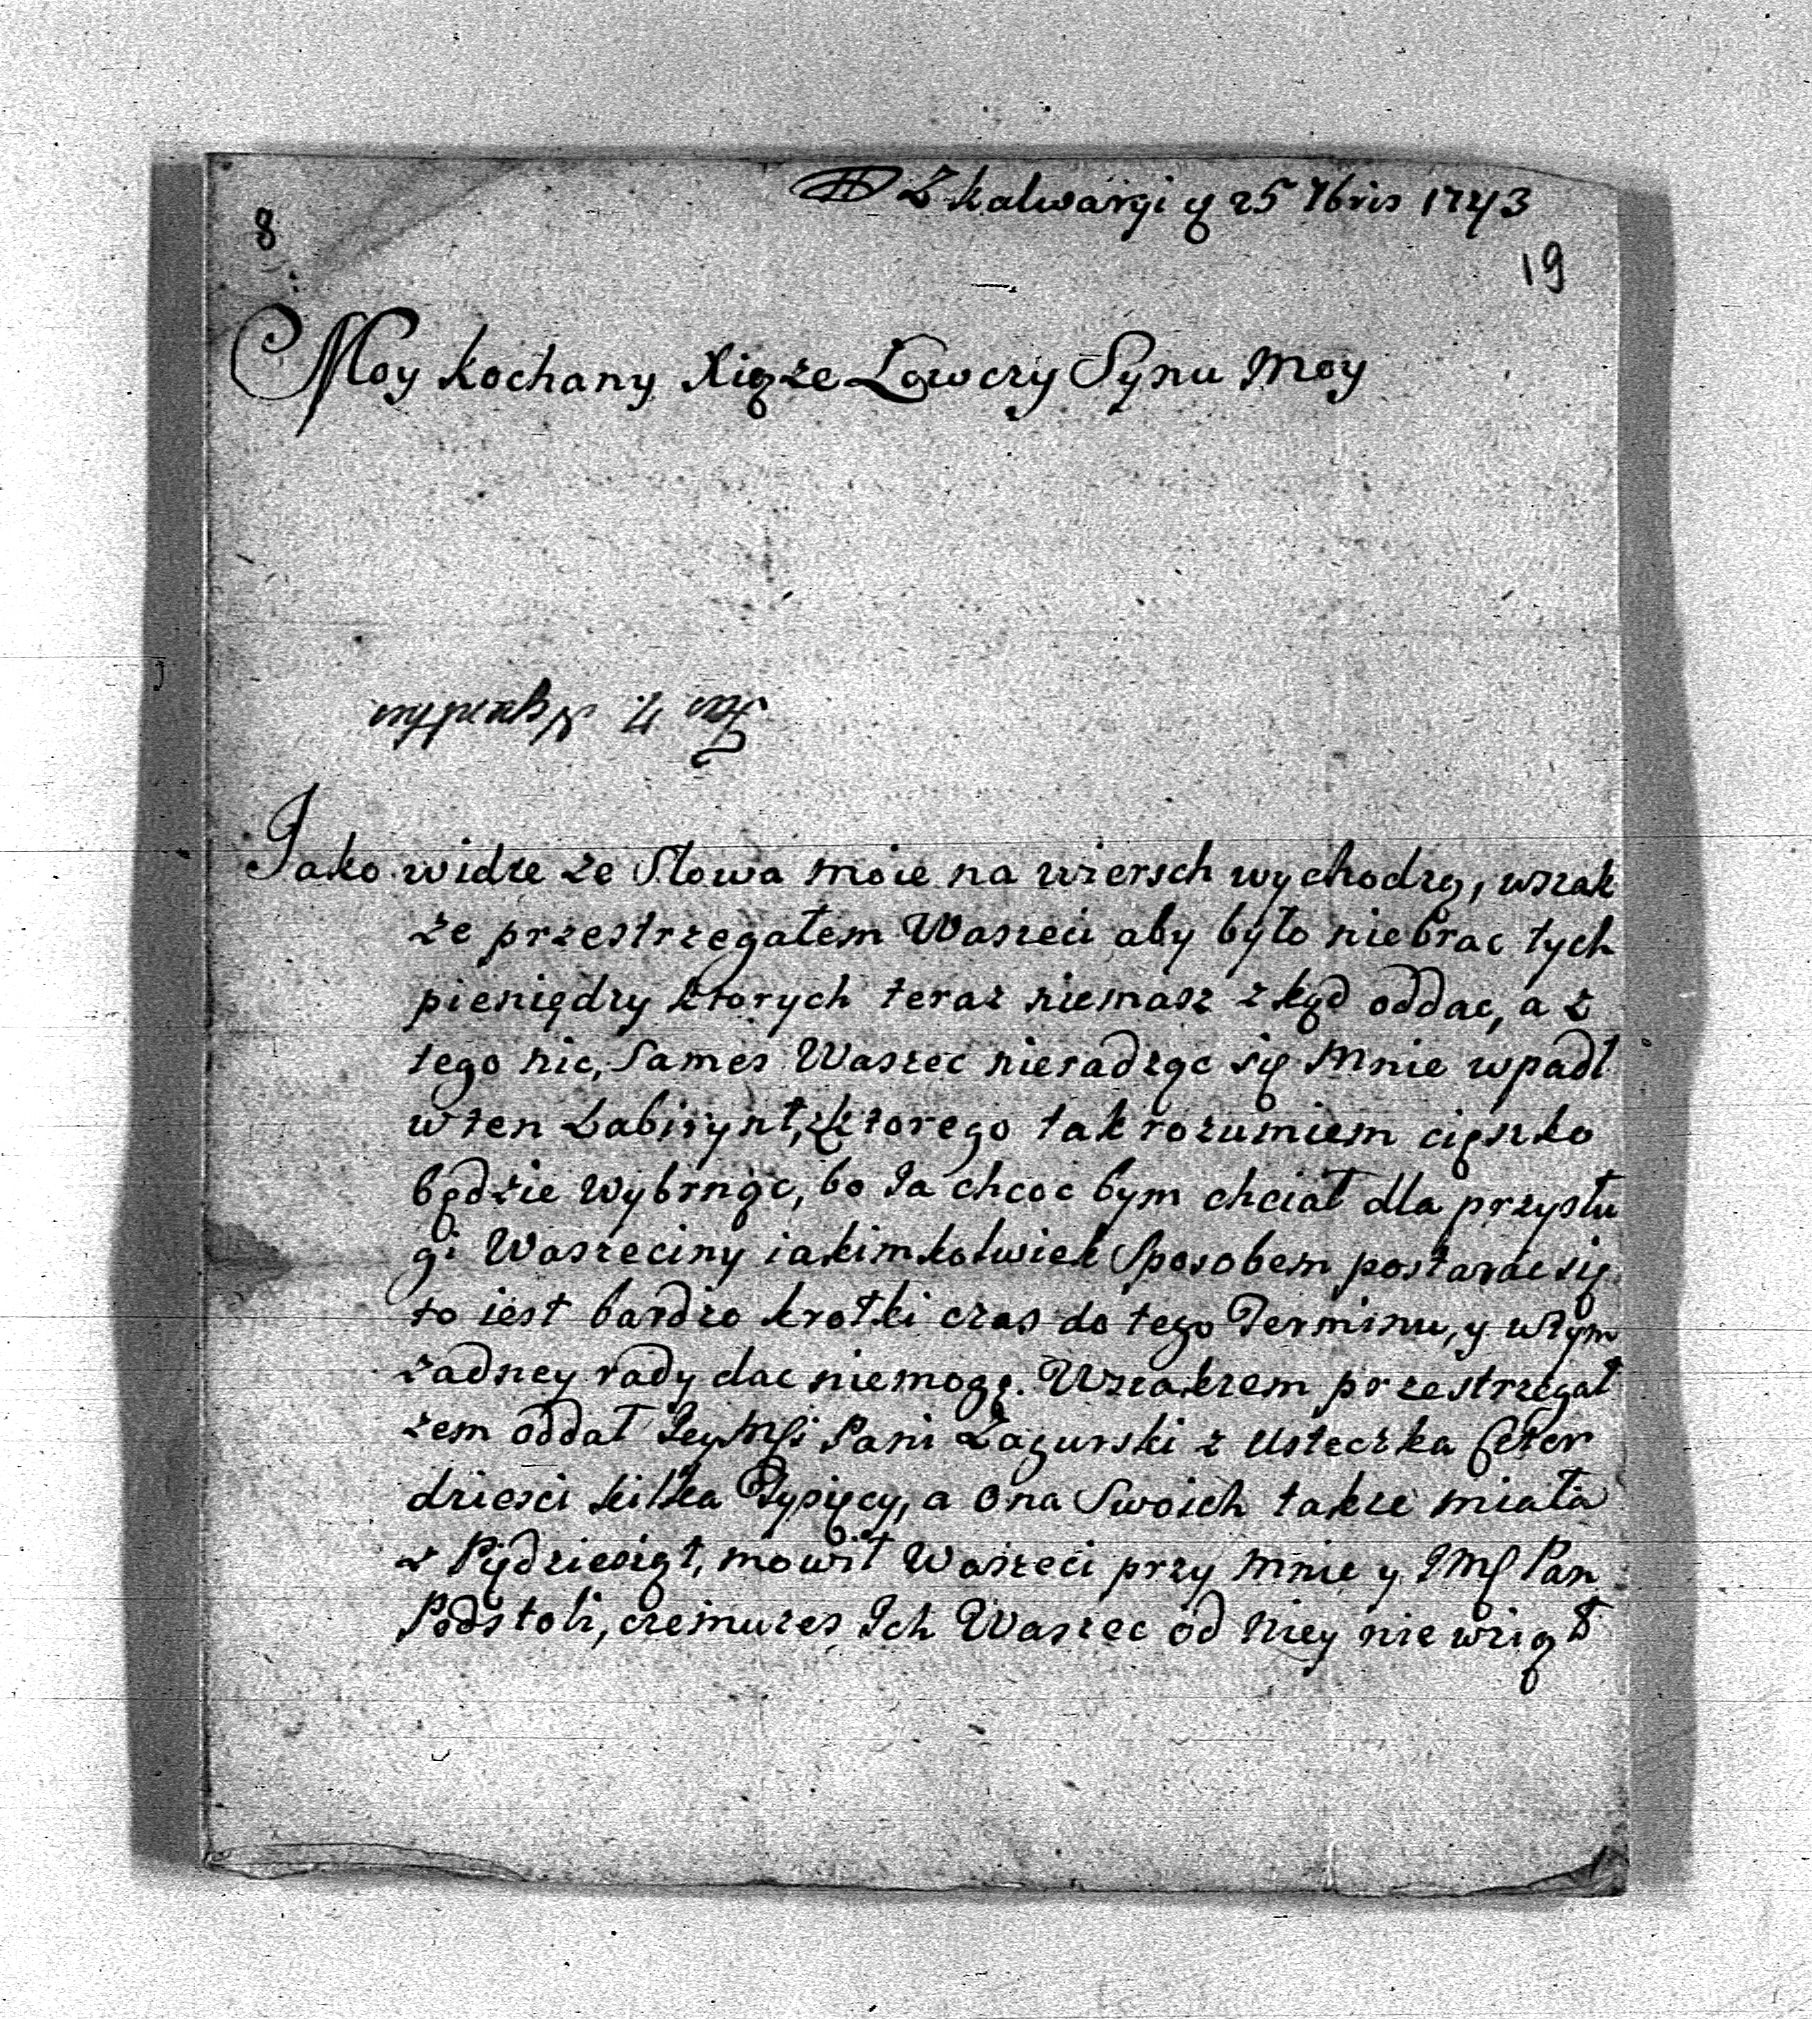 Z kalwaryi y 25 7bris 1743
8
19
Moy kochany Xiąże Łowczy Synu Moy
Jako widze ze Słowa moie na wiersch wychodzą, wszak
że przestrzegałem Waszeci aby było niebrac tych
pieniędzy ktorych teraz niemasz z kąd oddac, a z
tego nic, Sames Waszec nieradząc się Mnie wpadł
w ten Labirynt, z ktorego tak rozumiem cięszko
będzie wybrnąc, bo Ja chcoc bym chciał dla przysłu
gi Waszeciny iakimkolwiek Sposobem postarac się
to iest bardzo krotki czas do tego Terminu, y w tym
żadney rady dac niemogę. Wszakzem przestrzegał
zem oddał JeyMści Pani Zagurski z Usteczka Czter
dziesci kilka Tysięcy, a Ona Swoich takze miała
z Piędziesiąt, mowił Waszeci przy Mnie y JMſ Pan
Podstoli, czemuzes Ich Waszec od Niey nie wziął